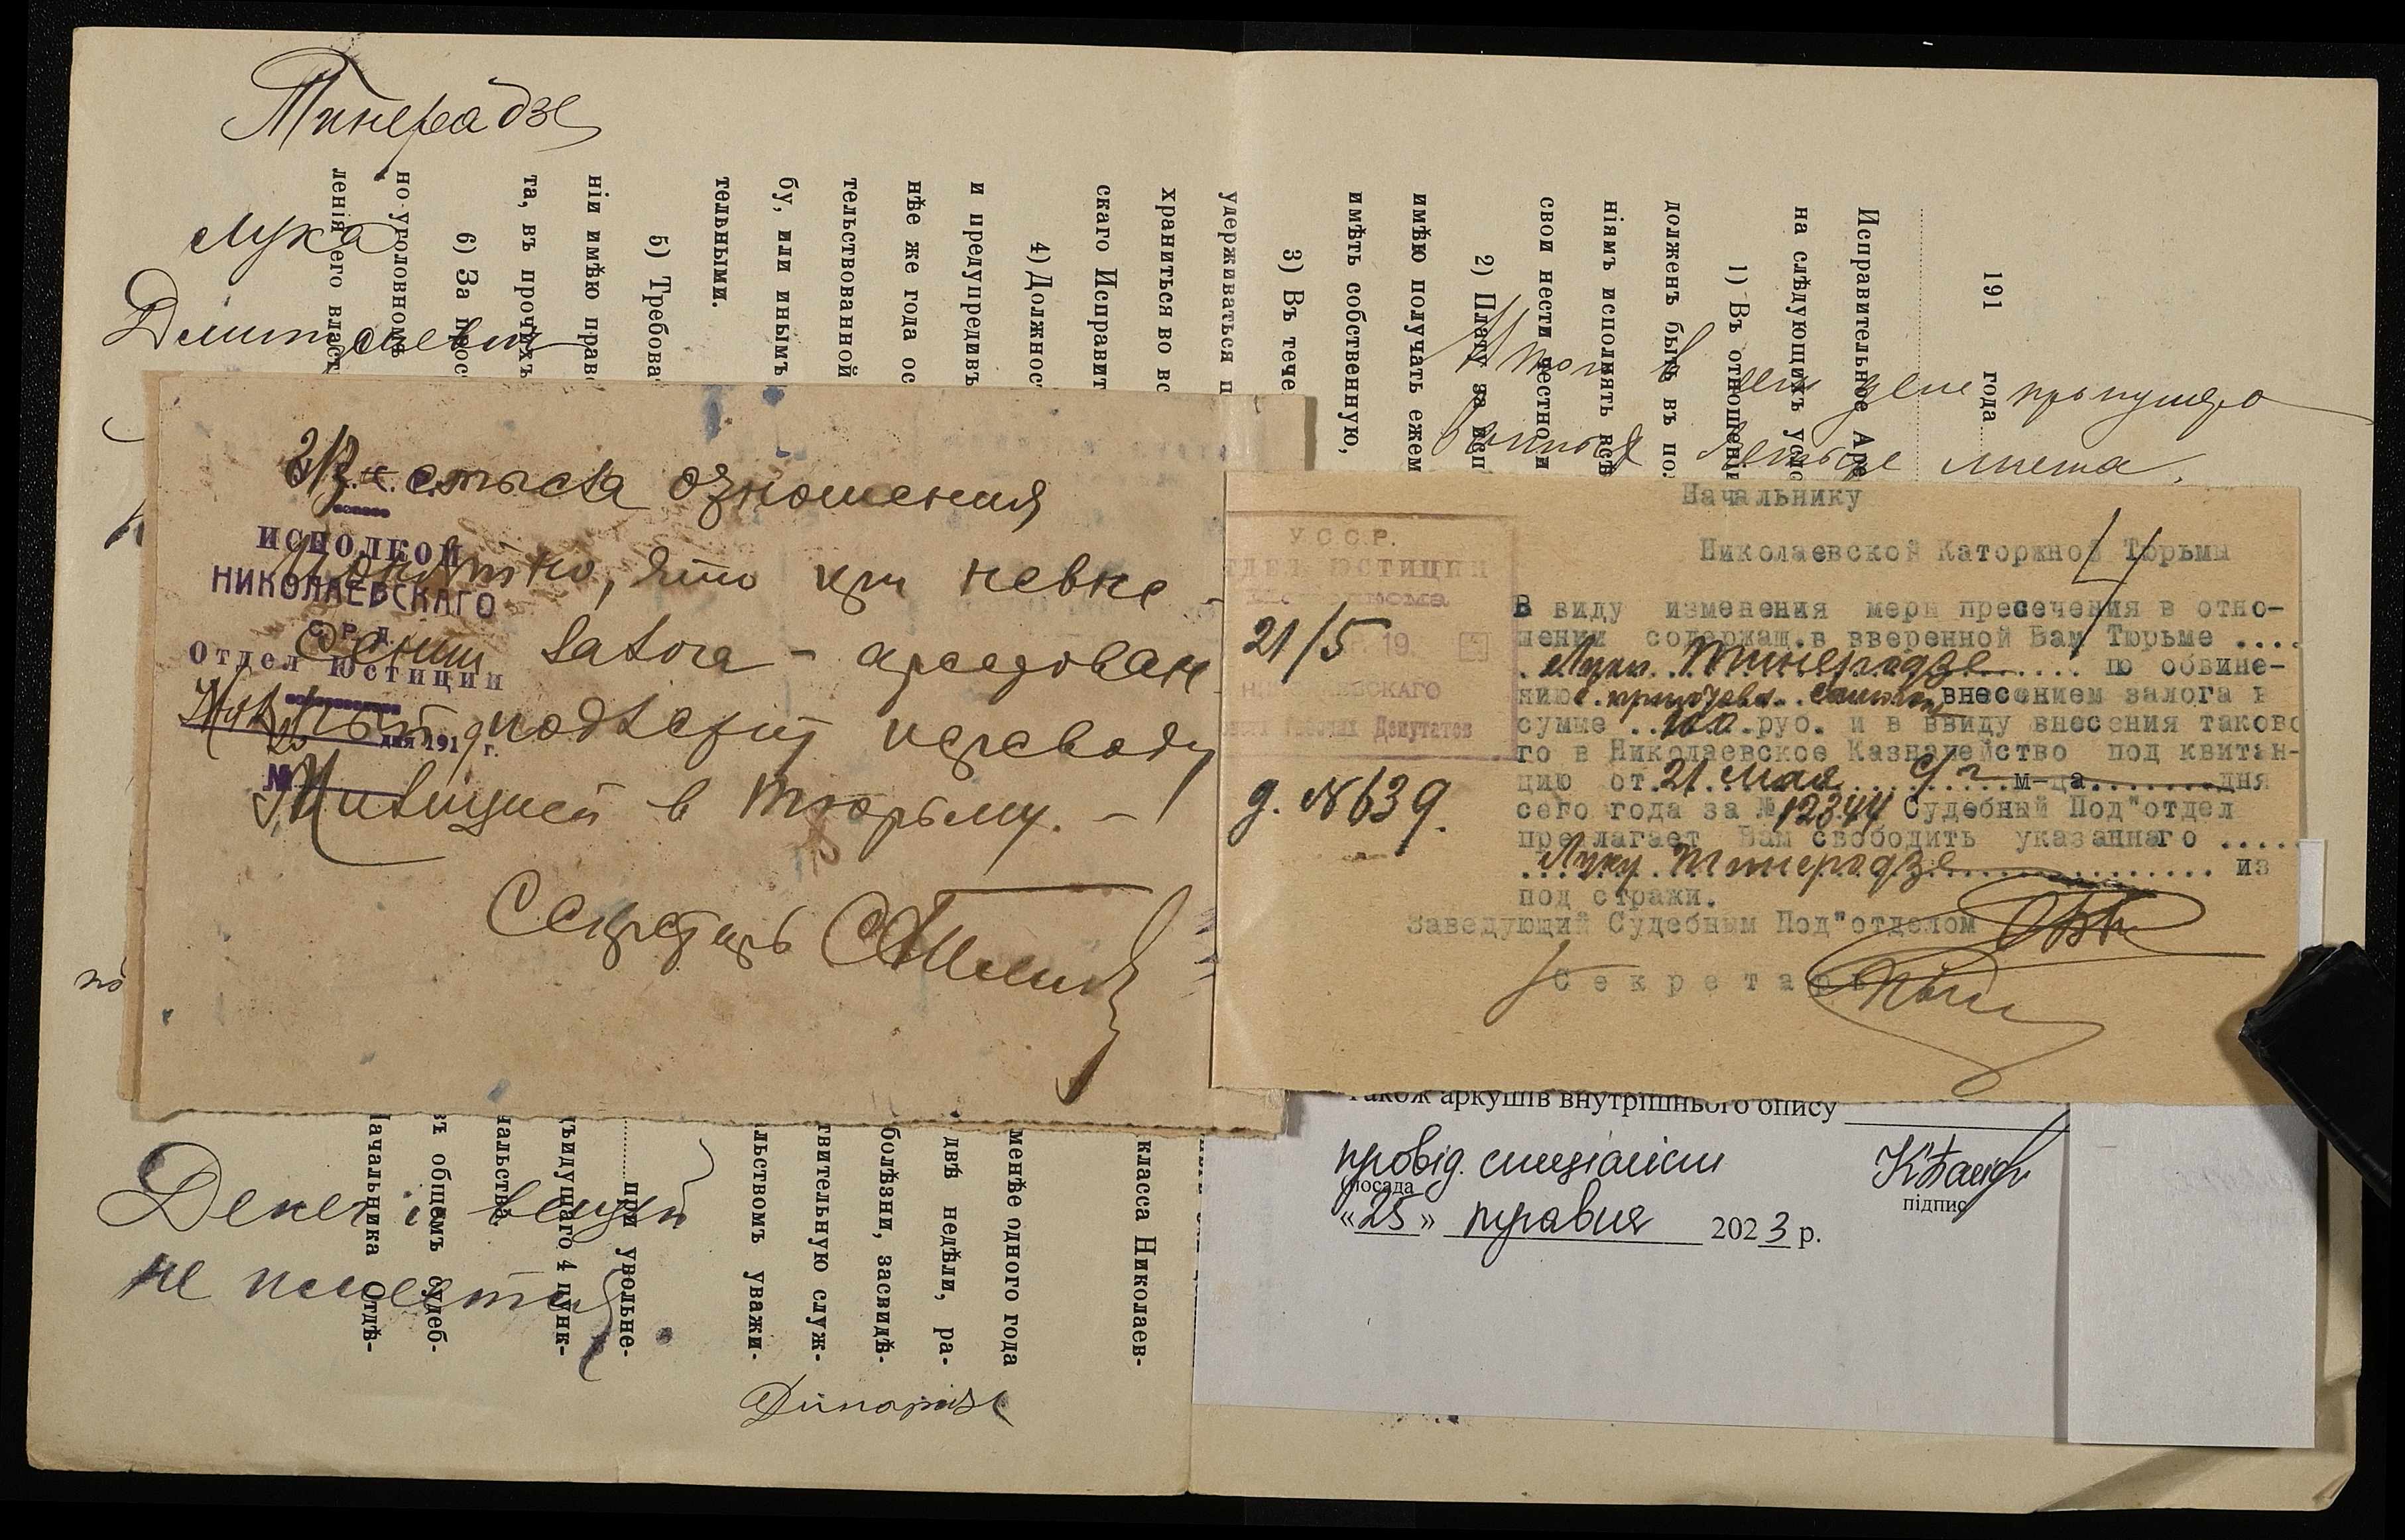 Тинерадзе
Лука
Дмитриевич
191 года
Исправительное Аре
на слѣдующихъ усло
1) Въ отношеніи
долженъ быть въ по
ніямъ исполнять всѣ
свои нести честно и
2) Плату за исп
имѣю получать ежем
имѣть собственную,
3) Въ тече
удерживаться п
храниться во вс
скаго Исправит
4) Должнос
и предупредивъ
нѣе же года ос
тельствованной
бу, или инымъ
тельными.
5) Требова
ніи имѣю право
та, въ прочихъ
6) За
но уголовномъ
ленія его власт
в деле пропущено
листа.
из смысла отношения
Понятно, что при невне-
сении залога - арестован
подлежит переводу
в тюрьму. -
Секретарь
ИСПОЛКОМ
НИКОЛАЕВСКАГО
С. Р. Д.
Отдел Юстиции
дня 191 г.
№
У.С.С.Р.
ОТДЕЛ ЮСТИЦИИ
19
НИКОЛАЕВСКАГО
Депутатов
21/5
д. №639.
Начальнику
Николаевской Каторжной Тюрьмы
В виду изменения меры пресечения в отно-
шении содержащ. в вверенной Вам Тюрьме ....
Луки Тинерадзе по обвине-
нию внесением залога в
сумме 100 руб. и в ввиду внесения таково
го в Николаевское Казначейство под квитан-
цию от 21 мая с/г м-ца дня
сего года за № 12344 Судебный Под"отдел
предлагает Вам свободить указаннаго ....
Луку Тинерадзе из
под стражи.
Заведующий Судебным Под"отделом
Секретарь
класса Николаев-
менѣе одного года
двѣ недѣли, ра-
болѣзни, засвидѣ-
твительную служ-
льствомъ уважи-
при увольне-
дъидущаго 4 пунк-
чальства
въ общемъ судеб-
Начальника Отдѣ-
Денег и вещей
не имеется
також аркушів внутрішнього опису
провід. спеціаліст
посада
підпис
«25» травня 2023 р.